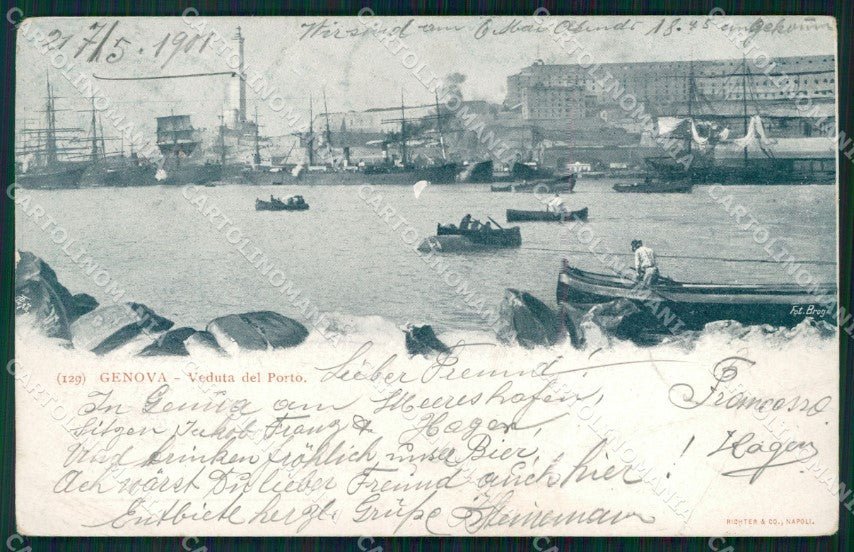 7/5. 1901
Wir sind am 6 Mai Abends 18.45 angekomm
Fot. Brogi
(129) GENOVA - Veduta del Porto.
Lieber Freund!
In Genua am Meereshafen,
Sitzen Jakob, Franz & Hagen,
Und trinken fröhlich unser Bier,
Ach wärst Du lieber Freund auch hier!
Entbiete herzl. Grüße Heinemann
Francesco
Hagen
RICHTER & CO., NAPOLI.
CARTOLINOMANIA